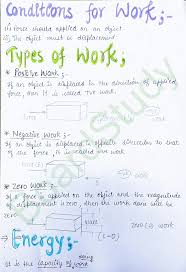 Conditions for Work;-
1. Force should applied on an object.
2. The object must be displacement.
Types of Work;-
* Positive Work:-
If an object is displaced in the direction of applied
force, then it is called +ve work.
* Negative Work:-
If an object is displaced opposite direction to that
of the force, it is called -ve work.
* Zero Work:-
If a force is applied on the object and the magnitude
of displacement is zero, then the work done will be
zero
Zero (0) work
(S=0)
⇒ Energy;-
It is the capacity of doing work